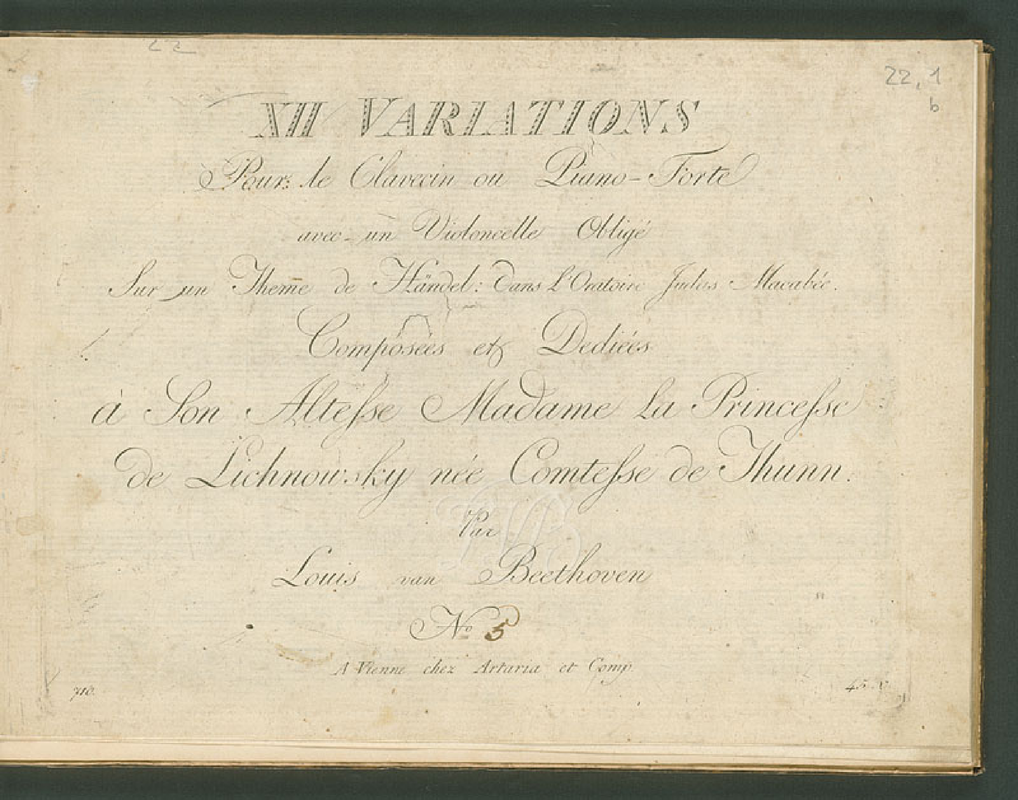 22
22, 1
b
XII VARIATIONS
Pour le Clavecin ou Piano-Forte
avec un Violoncelle Obligé
Sur un Theme de Händel: dans l'Oratoire Judas Macabée.
Composées et Dediées
à Son Altesse Madame la Princesse
de Lichnowsky née Comtesse de Thunn.
Par
Louis van Beethoven
No 5
A Vienne chez Artaria et Comp.
710.
45 x